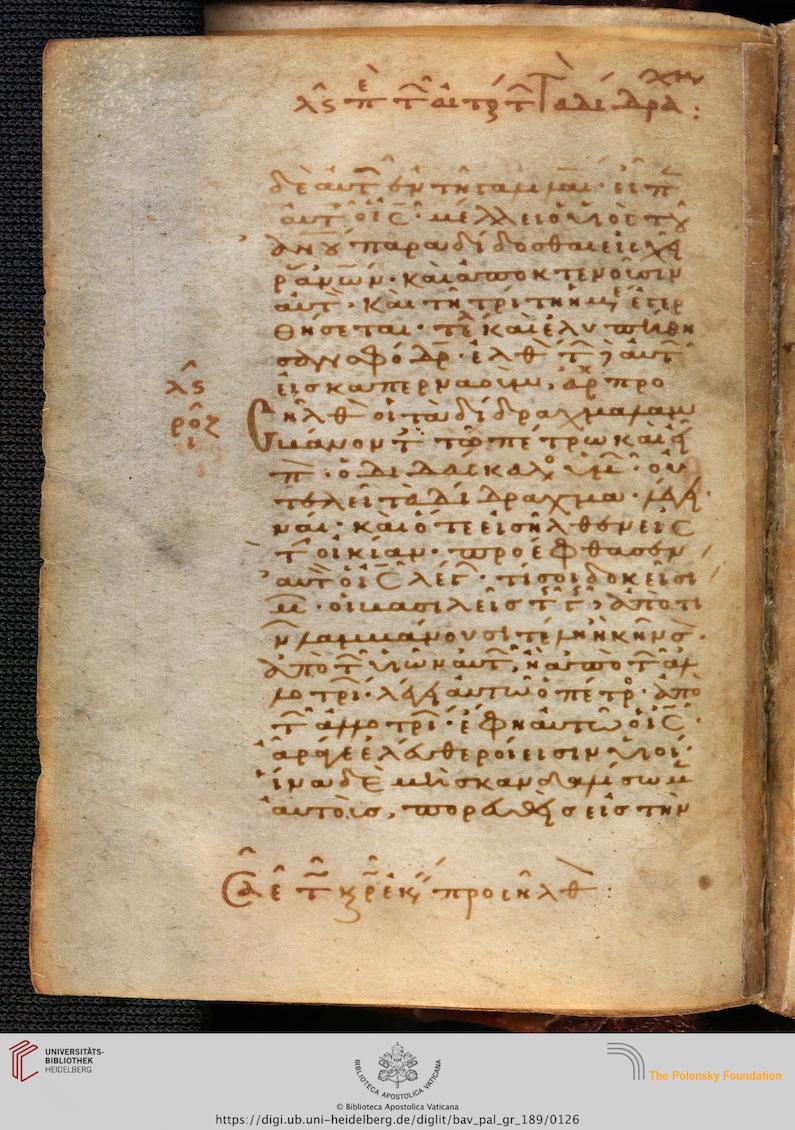 λς π τ αιτ τ τα δίδραχμ :
δὲ αὐτ ἐν τῆ γαλιλαί · εἶπ
αὐτ ὁ ις · μέλλει ὁ υἱὸς τοῦ
ἀνου παραδίδοσθαι εἰς χεῖ
ρας ανων · καὶ ἀποκτενοῦσιν
αὐτ, καὶ τῆ τρίτη ἡμ ἐγερ
θήσεται · τελ καὶ ἐλυπήθη
σαν σφόδρ · ἐλθ τ αὐτ
εἰς καπερναούμ, ἀρχ προ
σῆλθ οἱ τὰ δίδραχμα λαμ
βάνοντ τῶ πέτρω καὶ εἶ
π · ὁ διδάσκαλο ὑμ · οὐ
τελεῖ τὰ δίδραχμα · λέγει
ναί · καὶ ὅτε εἰσῆλθεν εἰς
τ οἰκίαν · προέφθασεν
αὐτ ὁ ις λέγ · τί σοι δοκεῖ σι
μ · οἱ βασιλεῖς τ γ, ἀπὸ τί
ν λαμβάνουσι τέλη ἢ κῆνσ ·
ἀπὸ τ υἱῶν αὐτ, ἢ ἀπὸ τ ἀλ
λοτρί · λέγει αὐτῶ ὁ πέτρ · ἀπὸ
τ ἀλλοτρί · ἔφη αὐτῶ ὁ ις ·
ἄραγε ἐλεύθεροί εἰσιν υἱοί ·
ἵνα δὲ μὴ σκανδαλίσωμ
αὐτούς, πορευθεὶς εἰς τὴν
λς
ροζ
ι
τ κρ ἐκ προσῆλθ :
UNIVERSITÄTS-
BIBLIOTHEK
HEIDELBERG
BIBLIOTECA APOSTOLICA VATICANA
The Polonsky Foundation
© Biblioteca Apostolica Vaticana
https://digi.ub.uni-heidelberg.de/diglit/bav_pal_gr_189/0126